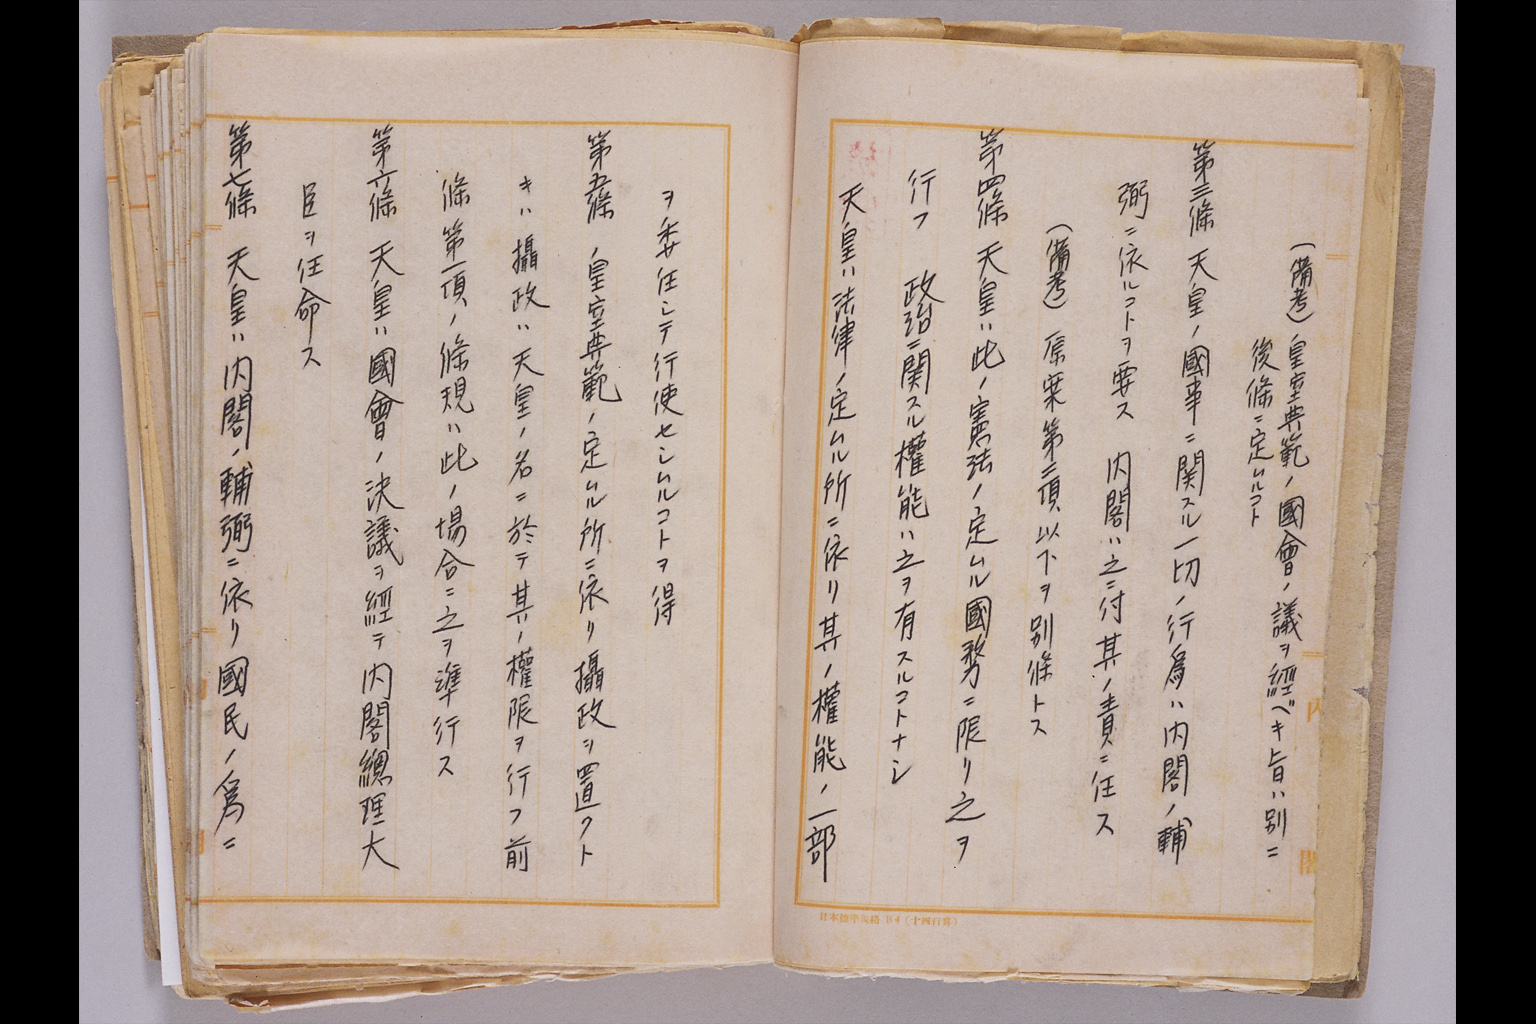 (備考) 皇室典範ノ國會ノ議ヲ經ベキ旨ハ別ニ
後條ニ定ムルコト
第三條 天皇ノ國事ニ関スル一切ノ行爲ハ内閣ノ輔
弼ニ依ルコトヲ要ス 内閣ハ之ニ付其ノ責ニ任ス
(備考) 原案第二項以下ヲ別條トス
第四條 天皇ハ此ノ憲法ノ定ムル國務ニ限リ之ヲ
行フ 政治ニ関スル權能ハ之ヲ有スルコトナシ
天皇ハ法律ノ定ムル所ニ依リ其ノ權能ノ一部
ヲ委任シテ行使セシムルコトヲ得
第五條 ノ皇室典範ノ定ムル所ニ依リ攝政ヲ置クト
キハ攝政ハ天皇ノ名ニ於テ其ノ權限ヲ行フ 前
條第一項ノ條規ハ此ノ場合ニ之ヲ準行ス
第六條 天皇ハ國會ノ決議ヲ經テ内閣總理大
臣ヲ任命ス
第七條 天皇ハ内閣ノ輔弼ニ依リ國民ノ爲ニ
内閣
日本標準規格B4(十四行罫)